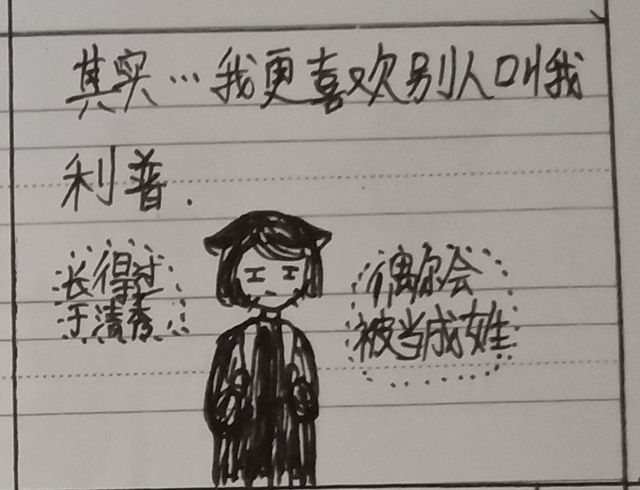 其实…我更喜欢别人叫我
利普.
长得过
于清秀
偶尔会
被当成女生